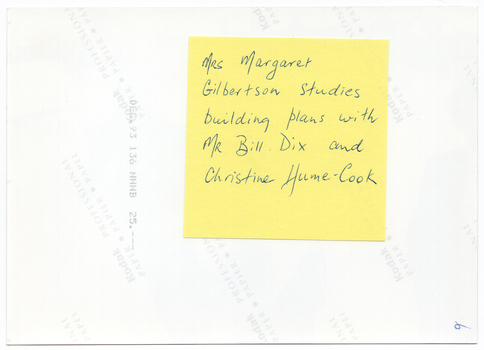 Mrs Margaret
Gilbertson Studies
building plans with
Mr Bill. Dix and
Christine Hume-Cook
Kodak
PROFESSIONAL
PAPER